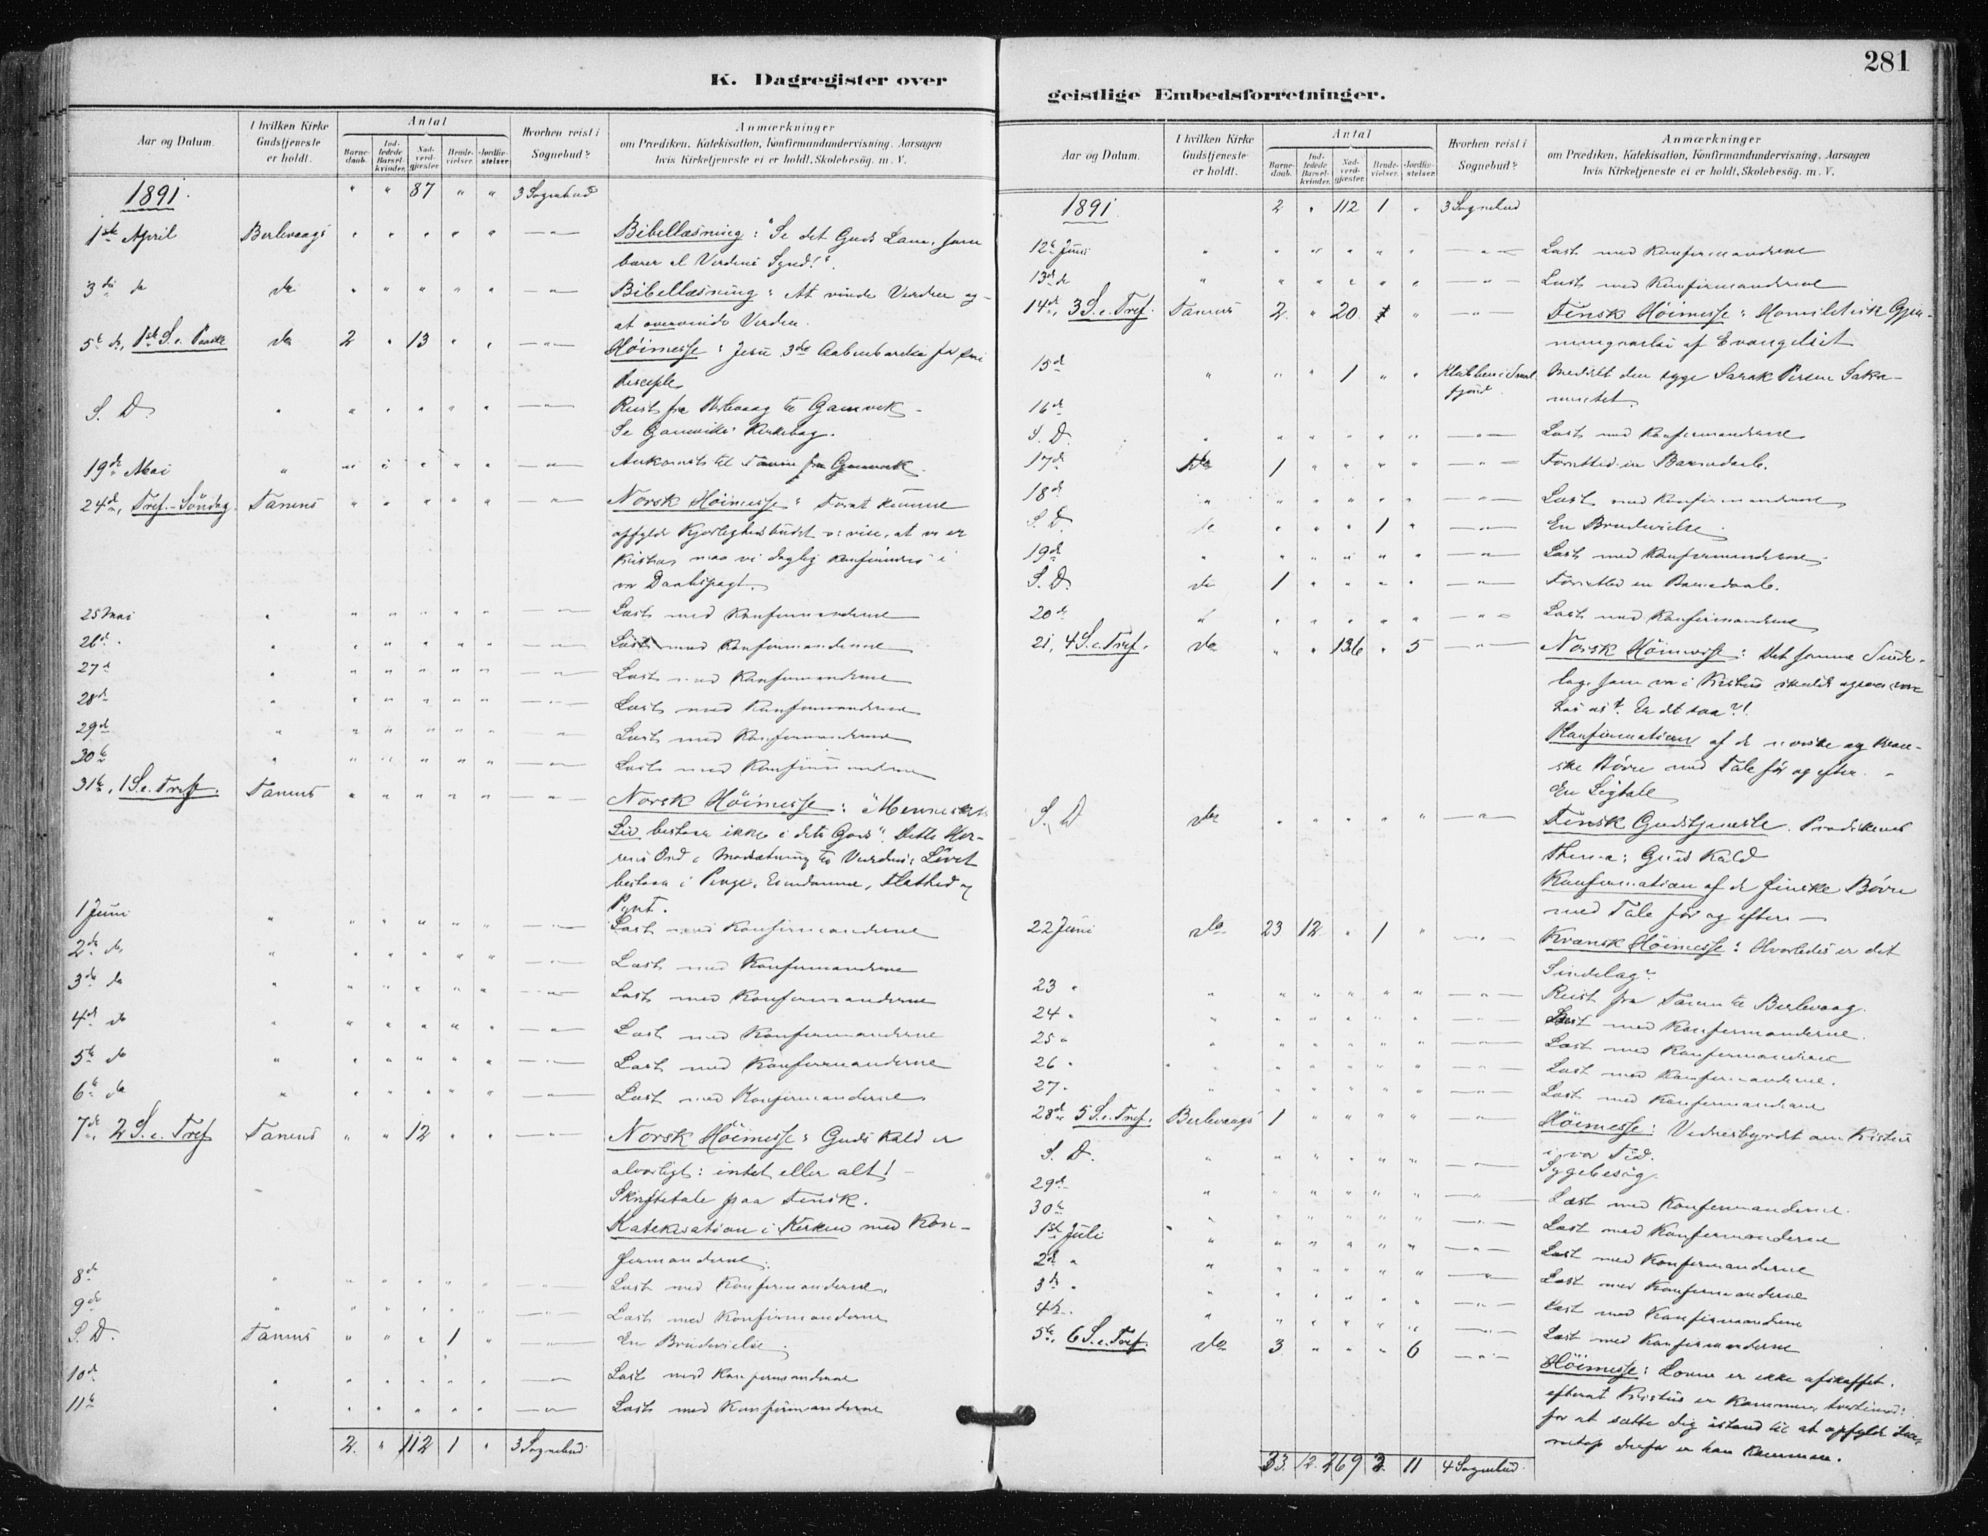 K. Dagregister over
Aar og Datum.
I hvilken Kirke Gudstjeneste er holdt.
Antal
Barnedaab.
Indledede Barselkvinder.
Nadverdgjæster.
Brudevielser.
Jordfæstelser.
Hvorhen reist i Sognebud?
Anmærkninger
om Prædiken, Katekisation, Konfirmandundervisning, Aarsagen
hvis Kirketjeneste ei er holdt, Skolebesög. m. V.
1891. " " 87 " " 3 Sognebud
1ste April Berlevaags " " " " " Bibellæsning: "Se det Guds Lam, som
bærer al Verdens Synd!".
3die do do " " " " " Bibellæsning: At vinde Verden og
at overvinde Verden.
5te do, 1ste S. e. Paaske do 2 " 13 " " Höimesse: Jesu 3die Aabenbarelse for sine
Disciple
S. D. " " " " " " Reist fra Berlevaag til Gamvik.
Se Gamviks Kirkebog.
19de Mai " " " " " " Ankommet til Tanen fra Gamvik.
24de, Tref.-Söndag Tanens " " " " " Norsk Höimesse: Forat kunne
opfylde Kjærlighedsbudet vise, at vi er
Kristne maa vi daglig konfirmeres i
vor Daabspagt.
25 Mai " " " " " " Læst med Konfirmanderne
26d. " " " " " " Læst med Konfirmanderne
27d " " " " " " Læst med Konfirmanderne
28de " " " " " " Læst med Konfirmanderne
29de " " " " " " Læst med Konfirmanderne
30te " " " " " " Læst med Konfirmanderne
31te, 1 S. e. Tref. Tanens " " " " " Norsk Höimesse: "Menneskets
Liv bestaar ikke i dets Gods". Dette Her-
rens Ord i Modsætning til Verdens: Livet
bestaar i Penge, Eiendomme, Stolthed og
Pynt.
1 Juni " " " " " " Læst med Konfirmanderne
2de do " " " " " " Læst med Konfirmanderne
3de do " " " " " " Læst med Konfirmanderne
4de do " " " " " " Læst med Konfirmanderne
5te do " " " " " " Læst med Konfirmanderne
6te do " " " " " " Læst med Konfirmanderne
7de, 2 S. e. Tref Tanens " " 12 " " Norsk Höimesse: Guds Kald er
alvorligt: intet eller alt!
Skriftetale paa Finsk.
Katekisation i Kirken med Kon-
firmanderne.
8de " " " " " " Læst med Konfirmanderne.
9de " " " " " " Læst med Konfirmanderne
S. D. Tanens " " " 1 " En Brudevielse.
10de " " " " " " Læst med Konfirmanderne
11te " " " " " " Læst med Konfirmanderne
2. " 112 1 " 3 Sognebud.
281
geistlige Embedsforretninger.
Aar og Datum.
I hvilken Kirke Gudstjeneste er holdt.
Antal
Barnedaab.
Indledede Barselkvinder.
Nadverdgjæster.
Brudevielser.
Jordfæstelser.
Hvorhen reist i Sognebud?
Anmærkninger
om Prædiken, Katekisation, Konfirmandundervisning, Aarsagen
hvis Kirketjeneste ei er holdt, Skolebesög. m. V.
1891. 2 " 112 1 " 3 Sognebud
12te Juni " " " " " " Læst med Konfirmanderne
13de do " " " " " " Læst med Konfirmanderne
14de, 3 S. e. Tref. Tanens 2 " 20 " Finsk Höimesse: Homiletisk Gjen-
nemgaaelse af Evangeliet
15de " " " 1 " " Meddelt den syge Sarak Persen Sakra-
mentet.
16de
S. D. " " " " " " Læst med Konfirmanderne
17de do 1 " " " " Forrettet en Barnedaab.
18de " " " " " " Læst med Konfirmanderne
S. D. do " " " 1 " En Brudevielse.
19de " " " " " " Læst med Konfirmanderne.
S. D. do 1 " " " " Forrettet en Barnedaab.
20de " " " " " " Læst med Konfirmanderne
21, 4 S. e. Tref. do " " 136 " 5 Norsk Höimesse: Det samme Sinde-
lag, som var i Kristus skulde ogsaa være
hos os. Er det saa?!
Konfirmation af de norske og kvæn-
ske Börn med Tale för og efter.
En Ligtale
S. D do " " " " " Finsk Gudstjeneste. Prædikenens
Thema: Guds Kald
Konfirmation af de finske Börn
med Tale för og efter.
22 Juni do 23 12 " 1 " Kvænsk Höimesse: Hvorledes er det
Sindelag?
23 " " " " " " " Reist fra Tanen til Berlevaag.
24 " " " " " " " Læst med Konfirmanderne.
25 " " " " " " " Læst med Konfirmanderne
26 " " " " " " " Læst med Konfirmanderne.
27 " " " " " " " Læst med Konfirmanderne
28de 5 S. e. Tref. Berlevaags 1 " " " " Höimesse: Vidnesbyrdet om Kristus
i vor Tid.
S. D. " " " " " " Sygebesög.
29de " " " " " " Læst med Konfirmanderne.
30te " " " " " " Læst med Konfirmanderne
1ste Juli " " " " " " Læst med Konfirmanderne
2de " " " " " " " Læst med Konfirmanderne
3de " " " " " " " Læst med Konfirmanderne
4de " " " " " " " Læst med Konfirmanderne
5te, 6 S. e. Tref. do 3 " " " 6 Höimesse: Loven er ikke afskaffet,
efterat Kristus er kommen, tvertimod:
for at sætte dig istand til at opfylde Loven,
netop derfor er han kommen.
33. 12. 269 3. 11 4 Sognebud.